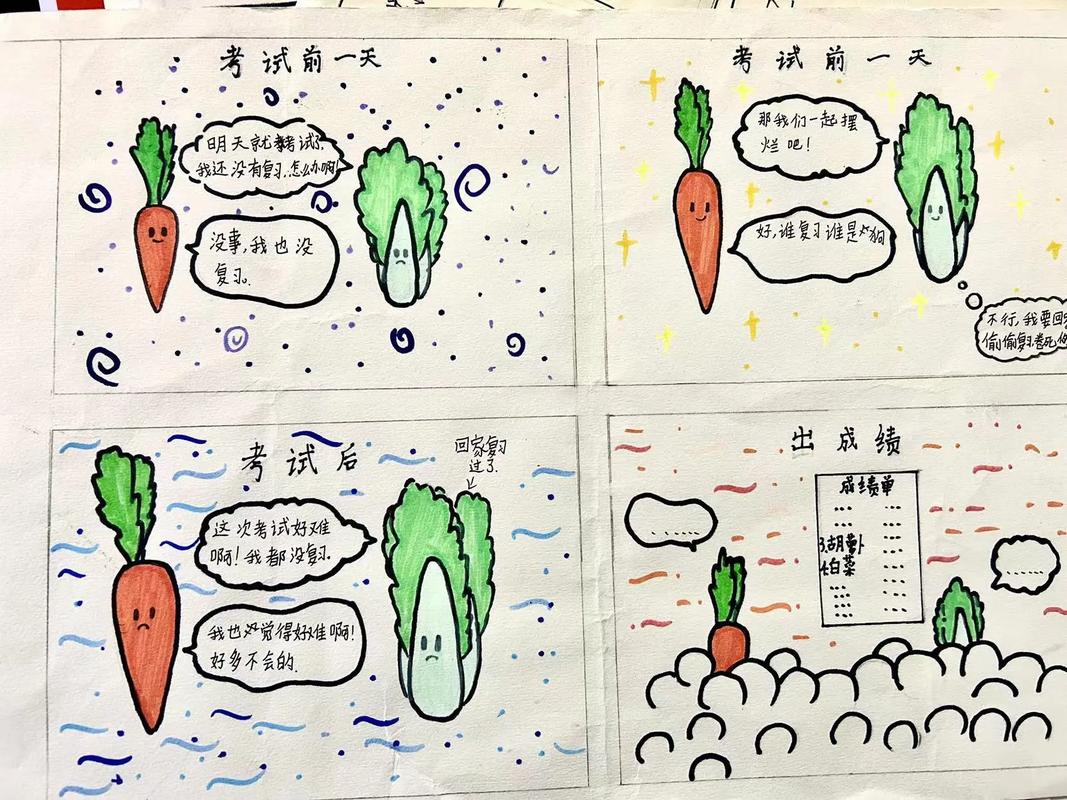 考试前一天
明天就考试了
我还没有复习.怎么办啊
没事,我也没
复习.
考试前一天
那我们一起摆
烂吧!
好,谁复习谁是狗
不行,我要回
偷偷复习卷死
考试后
回家复习
过了.
这次考试好难
啊!我都没复习.
我也觉得好难啊!
好多不会的.
出成绩
成绩单
3.胡萝卜
白菜